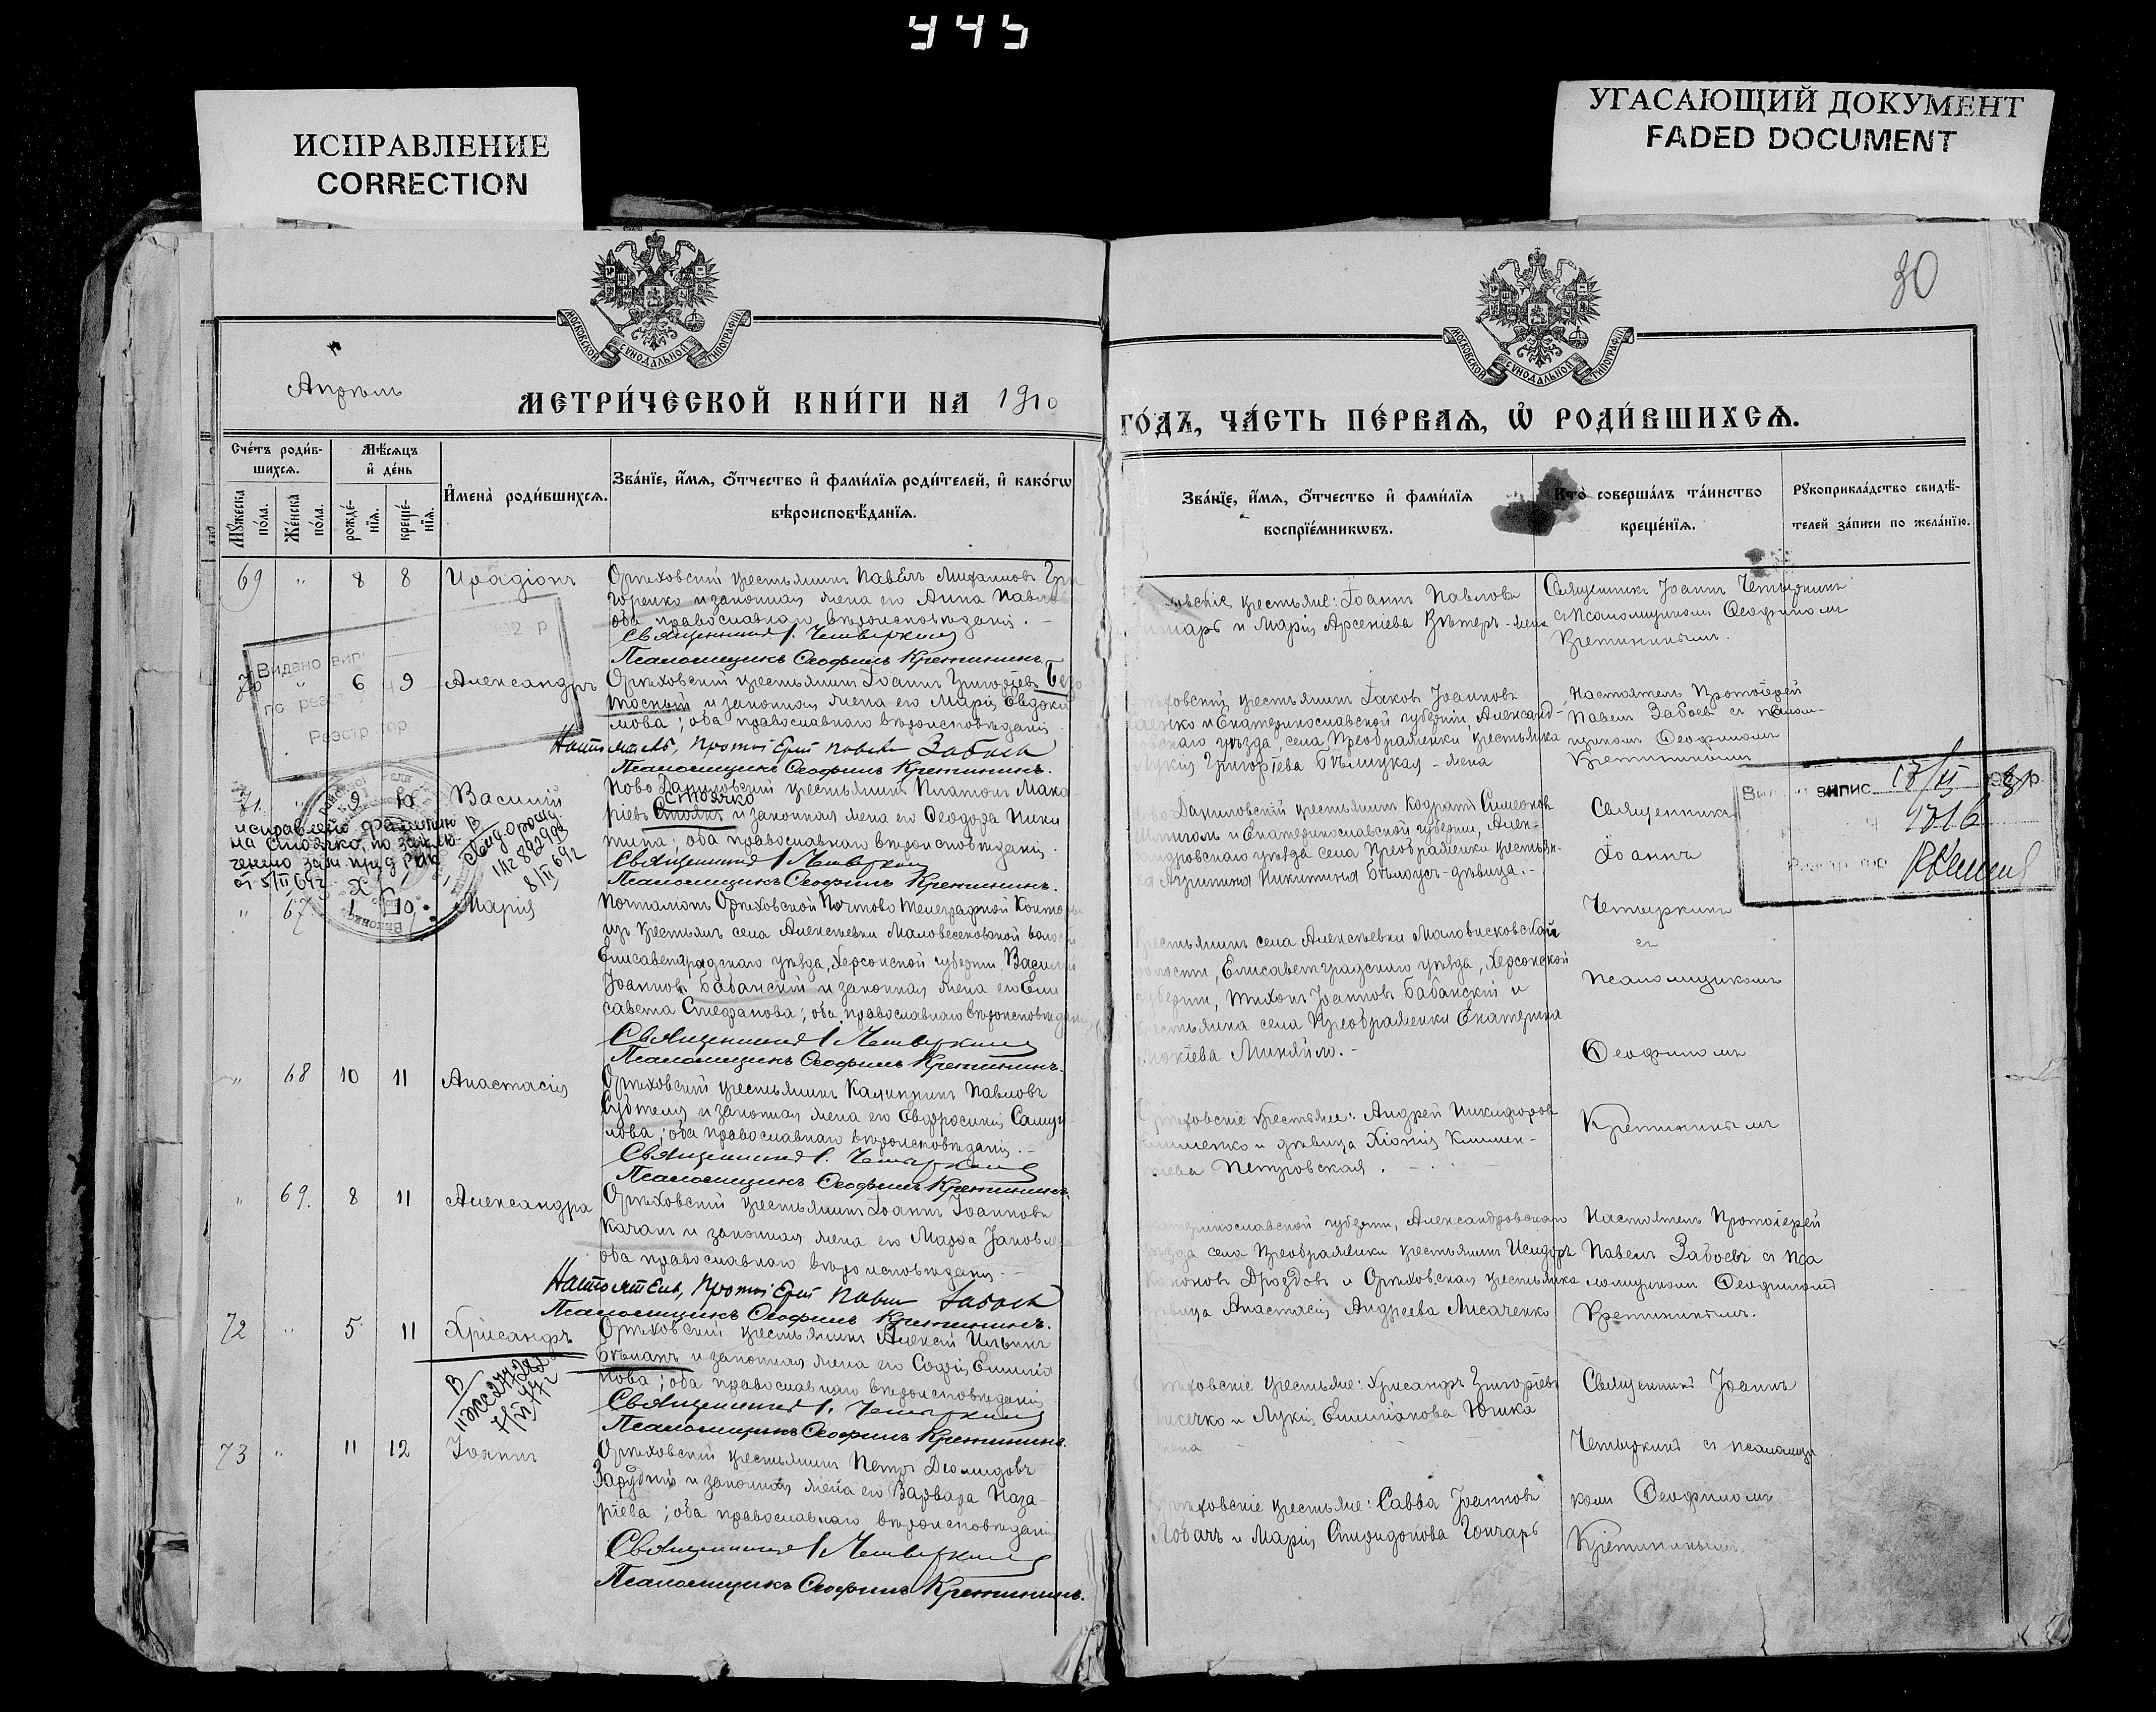 445
ИСПРАВЛЕНИЕ
CORRECTION
УГАСАЮЩИЙ ДОКУМЕНТ
FADED DOCUMENT
30
МОСКОВСКОЙ СУНОДАЛЬНОЙ ТИПОГРАФІИ
МОСКОВСКОЙ СУНОДАЛЬНОЙ ТИПОГРАФІИ
Апрѣль
МЕТРИ́ЧЕСКОЙ КНИ́ГИ НА 1910
ГО́ДЪ, ЧА́СТЬ ПЕ́РВАѦ, Ѡ҆ РОДИ́ВШИХСѦ.
Сче́тъ роди́в-
шихсѧ.
Мꙋ́жеска по́ла.
Же́нска по́ла.
Мѣ́сѧцъ
и҆ де́нь
рожде́-
нїѧ.
креще́-
нїѧ.
И҆мена̀ роди́вшихсѧ.
Зва́нїе, и҆́мѧ, ѻ҆́тчество и҆ фами́лїѧ роди́телей, и҆ како́гѡ
вѣроисповѣ́данїѧ.
Зва́нїе, и҆́мѧ, ѻ҆́тчество и҆ фами́лїѧ
воспрїе́мникѡвъ.
Кто̀ соверша́лъ та́инство
креще́нїѧ.
Рꙋкоприкла́дство свидѣ́-
телей за́писи по жела́нїю.
69 " 8 8 Иродіонъ
Орѣховскій крестьянинъ Павелъ Михаиловъ Гри
горенко и законная жена его Анна Павлова
оба православнаго вѣроисповѣданія.
Священникъ І. Четыркинъ
Псаломщикъ Ѳеофилъ Кретининъ.
крестьяне: Іоаннъ Павловъ
и Марія Арсеніева Вѣтеръ - жена
Священникъ Іоаннъ Четыркинъ
съ псаломщикомъ Ѳеофиломъ
Кретининымъ.
70 " 6 9 Александръ
Орѣховскій крестьянинъ Іоаннъ Григоріевъ
и законная жена его Марія Евдоки
мова; оба православнаго вѣроисповѣданія
Настоятель, Протоіерей Павелъ Забоевъ
Псаломщикъ Ѳеофилъ Кретининъ.
крестьянинъ Іаковъ Іоанновъ
и Екатеринославской губерніи, Александ-
ровскаго уѣзда, села Преображенки крестьянка
Лукія Григоріева Бѣлицкая - жена
Настоятель Протоіерей
Павелъ Забоевъ съ псалом-
щикомъ Ѳеофиломъ
Кретининымъ
71. " 9 10 Василій
Ново Даниловскій крестьянинъ Платонъ Мака
Стоячко
ріевъ и законная жена его Ѳеодора Ники
тина; оба православнаго вѣроисповѣданія.
Священникъ І. Четыркинъ
Псаломщикъ Ѳеофилъ Кретининъ.
исправлено фамилию
на Стоячко, по заклю
от 5/II 64г
8/II 64г
Ново Даниловскій крестьянинъ Кодратъ Симеоновъ
и Екатеринославской губерніи, Алек-
сандровскаго уѣзда села Преображенки крестьян-
ка Агрипина Никитина Бѣлоусъ - дѣвица. -
Священникъ
Іоаннъ
Четыркинъ
съ
псаломщикомъ
Ѳеофиломъ
Кретининымъ
" 67 1 10 Марія
Почталіонъ Орѣховской Почтово Телеграфной Конторы
изъ крестьянъ села Алексѣевки
Елисаветградскаго уѣзда, Херсонской губерніи, Василій
Іоанновъ Бабанскій и законная жена его Ели
савета Стефанова; оба православнаго вѣроисповѣданія
Священникъ І. Четыркинъ
Псаломщикъ Ѳеофилъ Кретининъ.
Крестьянинъ села Алексѣевки Маловисковской
волости, Елисаветградскаго уѣзда, Херсонской
губерніи, Тихонъ Іоанновъ Бабанскій и
крестьянка села Преображенки Екатерина
" 68 10 11 Анастасія
Орѣховскій крестьянинъ Каллиникъ Павловъ
и законная жена его Евфросинія Самуи
лова; оба православнаго вѣроисповѣданія. -
Священникъ І. Четыркинъ
Псаломщикъ Ѳеофилъ Кретининъ.
Орѣховскіе крестьяне: Андрей Никифоровъ
и дѣвица Хіонія Климен-
Петровская.
" 69. 8 11 Александра
Орѣховскій крестьянинъ Іоаннъ Іоанновъ
Качанъ и законная жена его Марѳа Іаковлева
оба православнаго вѣроисповѣданія. -
Настоятель, Протоіерей Павелъ Забоевъ
Псаломщикъ Ѳеофилъ Кретининъ.
Екатеринославской губерніи, Александровскаго
уѣзда села Преображенки крестьянинъ Исидоръ
Кононовъ Дроздовъ и Орѣховская крестьянка
дѣвица Анастасія Андреева Лисаченко
Настоятель Протоіерей
Павелъ Забоевъ съ пса
ломщикомъ Ѳеофиломъ
Кретининымъ.
72 " 5 11 Хрисанфъ
Орѣховскій крестьянинъ Алексій Ильинъ
Бѣланъ и законная жена его Софія Емилія
нова; оба православнаго вѣроисповѣданія
Священникъ І. Четыркинъ
Псаломщикъ Ѳеофилъ Кретининъ.
Орѣховскіе крестьяне: Хрисанфъ Григоріевъ
и Лукія Емиліанова Юшка
жена
Священникъ Іоаннъ
Четыркинъ съ псаломщи
комъ Ѳеофиломъ
Кретининымъ
73 " 11 12 Іоаннъ
Орѣховскій крестьянинъ Петръ Діомидовъ
Зарудній и законная жена его Варвара Наза-
ріева; оба православнаго вѣроисповѣданія
Священникъ І. Четыркинъ
Псаломщикъ Ѳеофилъ Кретининъ.
Орѣховскіе крестьяне: Савва Іоанновъ
Лобачъ и Марія Спиридонова Гончаръ
Видано вип
Реэстр тор
1016